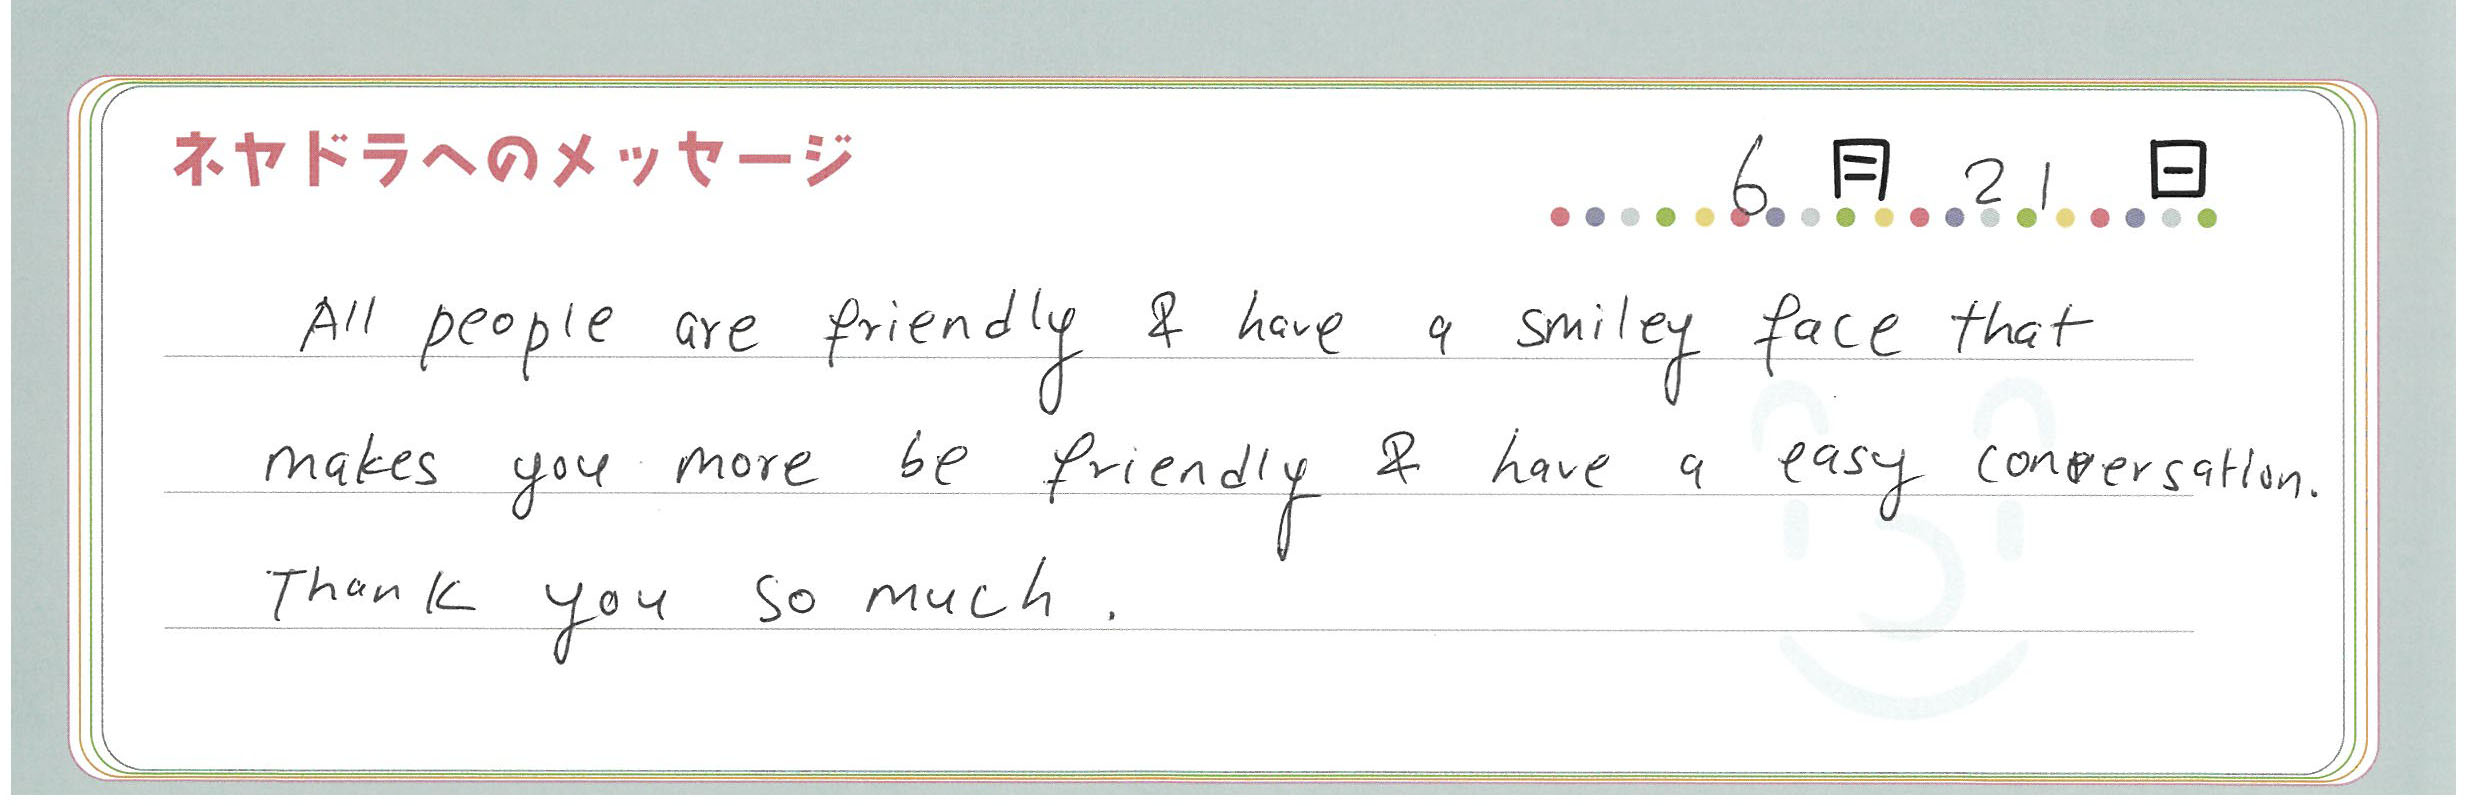 ネヤドラへのメッセージ
6月21日
All people are friendly & have a smiley face that
makes you more be friendly & have a easy conversation.
Thank you so much.